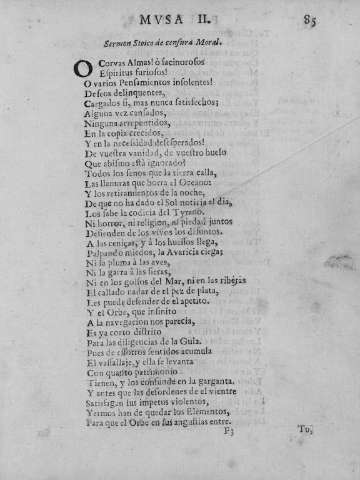 MVSA II. 85
Sermon Stoico de censura Moral.
O Corvas Almas! ò facinorosos
Espiritus furiosos!
O varios Pensamientos insolentes!
Deseos delinquentes,
Cargados sì, mas nunca satisfechos;
Alguna vez cansados,
Ninguna arrepentidos,
En la copia crecidos,
Y en la necesidad desesperados!
De vuestra vanidad, de vuestro buelo
Que abismo està ignorado?
Todos los senos que la tierra calla,
Las llanuras que borra el Oceano:
Y los retiramientos de la noche,
De que no ha dado el Sol noticia al dia,
Los sabe la codicia del Tyrano.
Ni horror, ni religion, ni piedad juntos
Defienden de los vivos los difuntos.
A las ceniças, y à los huessos llega,
Palpando miedos, la Avaricia ciega;
Ni la pluma à las aves,
Ni la garra à las fieras,
Ni en los golfos del Mar, ni en las riberas
El callado nadar de el pez de plata,
Les puede defender de el apetito.
Y el Orbe, que infinito
A la navegacion nos parecia,
Es ya corto distrito
Para las diligencias de la Gula.
Pues de essotros sentidos acumula
El vassallaje, y ella se levanta
Con quanto patrimonio
Tienen, y los confunde en la garganta.
Y antes que las desordenes de el vientre
Satisfagan sus impetus violentos,
Yermos han de quedar los Elementos,
Para que el Orbe en sus angustias entre.
F3 Tu,